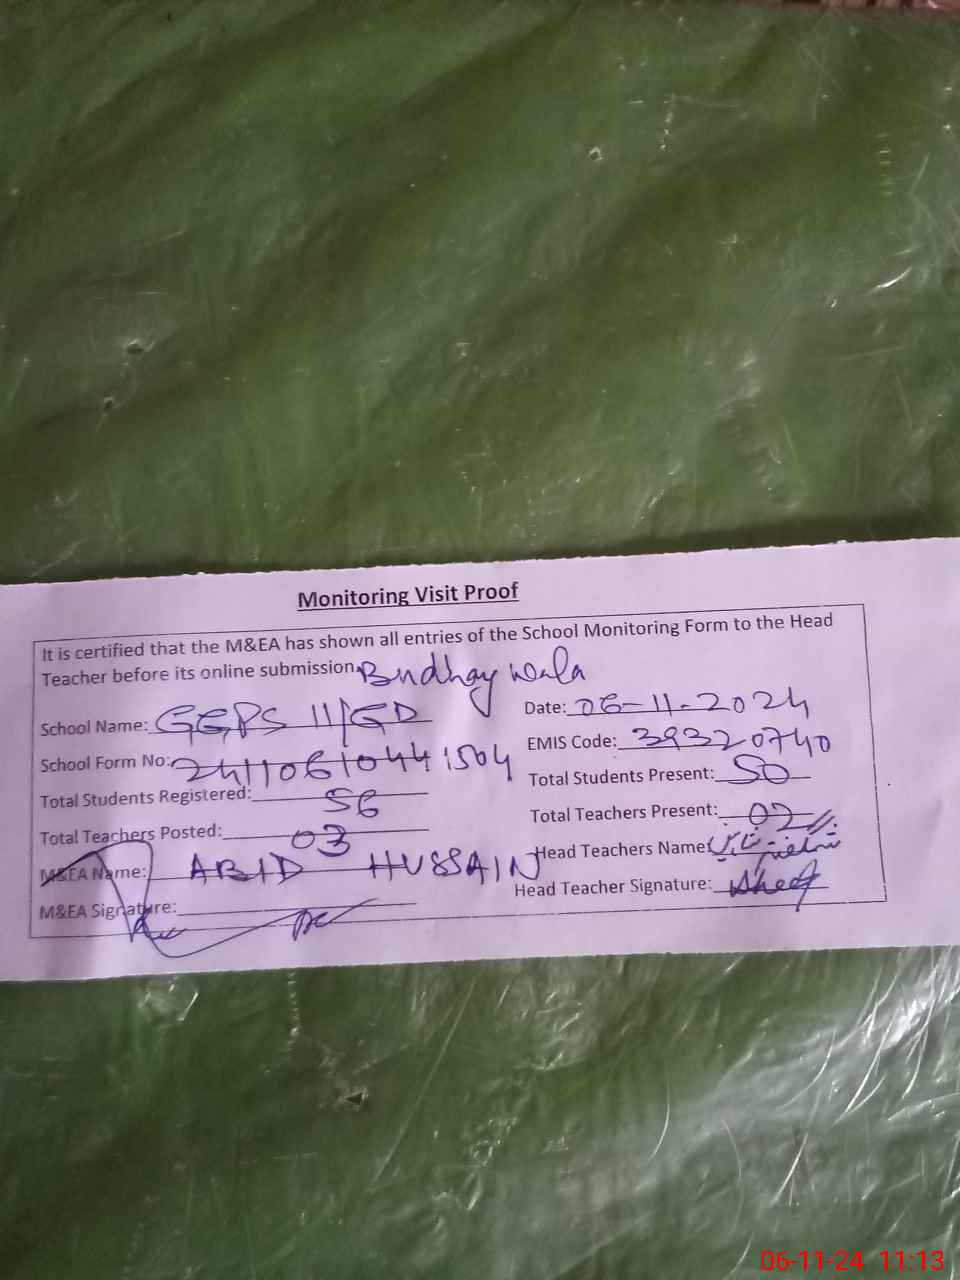 Monitoring Visit Proof
It is certified that the M&EA has shown all entries of the School Monitoring Form to the Head
Teacher before its online submission. Budhay Wala
School Name: GGPS 11/GD Date: 06-11-2024
School Form No: 2411061044 1504 EMIS Code: 39320740
Total Students Registered: 56 Total Students Present: 50
Total Teachers Posted: 03 Total Teachers Present: 02
M&EA Name: ABID HUSSAIN Head Teachers Name:
M&EA Signature: Head Teacher Signature:
06-11-24 11:13